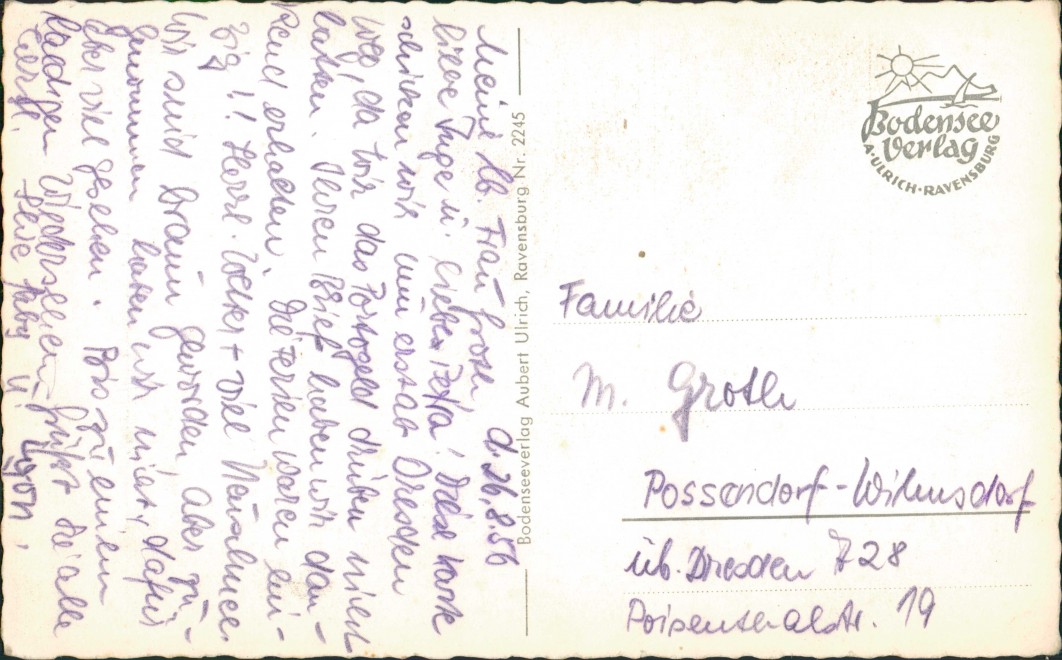 d. 26.8.56
Meine lb. Frau Groth
liebe Inge u. lieber Peter! Diese Karte
schicken wir nun erst ab Dresden
weg, da wir das Portogeld drüben nicht
hatten. Ihren Brief haben wir dan-
kend erhalten. Die Ferien waren ein-
zig!! Herrl. Wetter + viel Neuschnee.
Wir sind braun geworden aber zu-
genommen haben wir nicht, dafür
aber viel gesehen. Bis zu einem
baldigen Wiedersehen grüßt Sie alle
herzl.
Bodenseeverlag Aubert Ulrich, Ravensburg Nr. 2245
Bodensee
Verlag
A·ULRICH·RAVENSBURG
Familie
M. Groth
Possendorf-Wilmsdorf
üb. Dresden A 28
Poisentalstr. 19